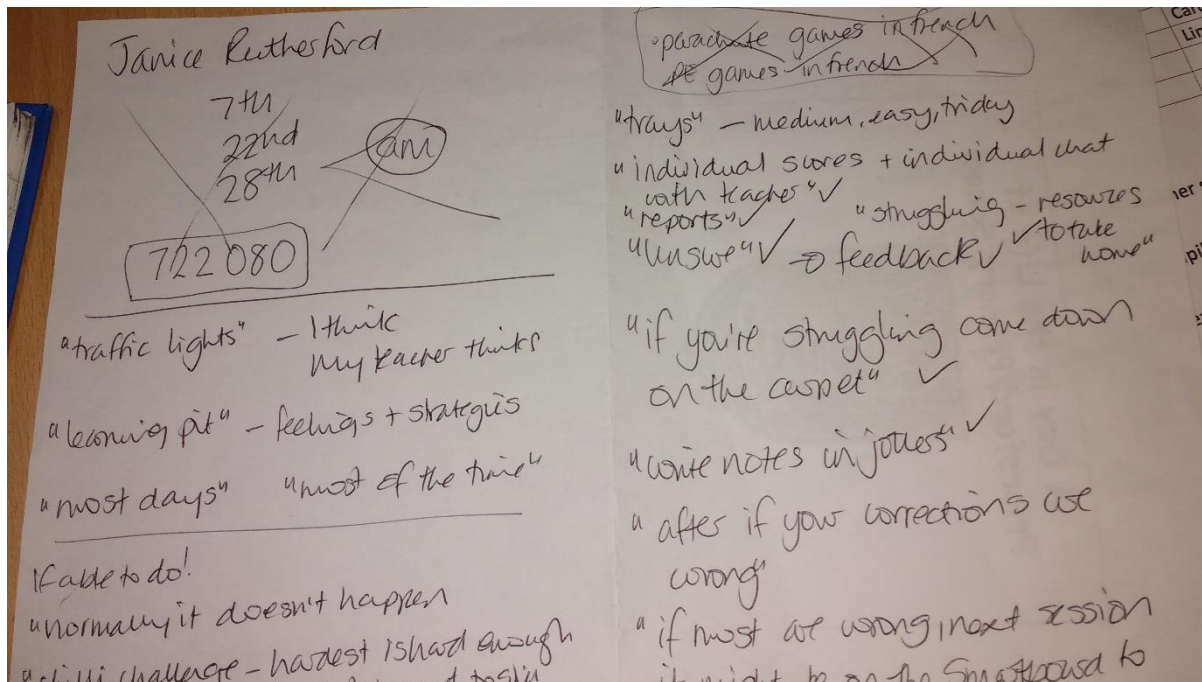 Janice Rutherford
7th
22nd
28th
am
722080
"traffic lights" - I think
my teacher thinks
"learning pit" - feelings + strategies
"most days" "most of the time"
If able to do!
"normally it doesn't happen
challenge - hardest is hard enough
• parachute games in french
PE games in french
"trays" - medium, easy, tricky
"individual scores + individual chat
with teacher" ✓
"reports" ✓ "struggling - resources
✓ to take
home"
✓ → feedback ✓
"if you're struggling come down
on the carpet" ✓
"write notes in jotters" ✓
"after if your corrections are
wrong"
"if most are wrong, next session
it might be on the Smartboard to